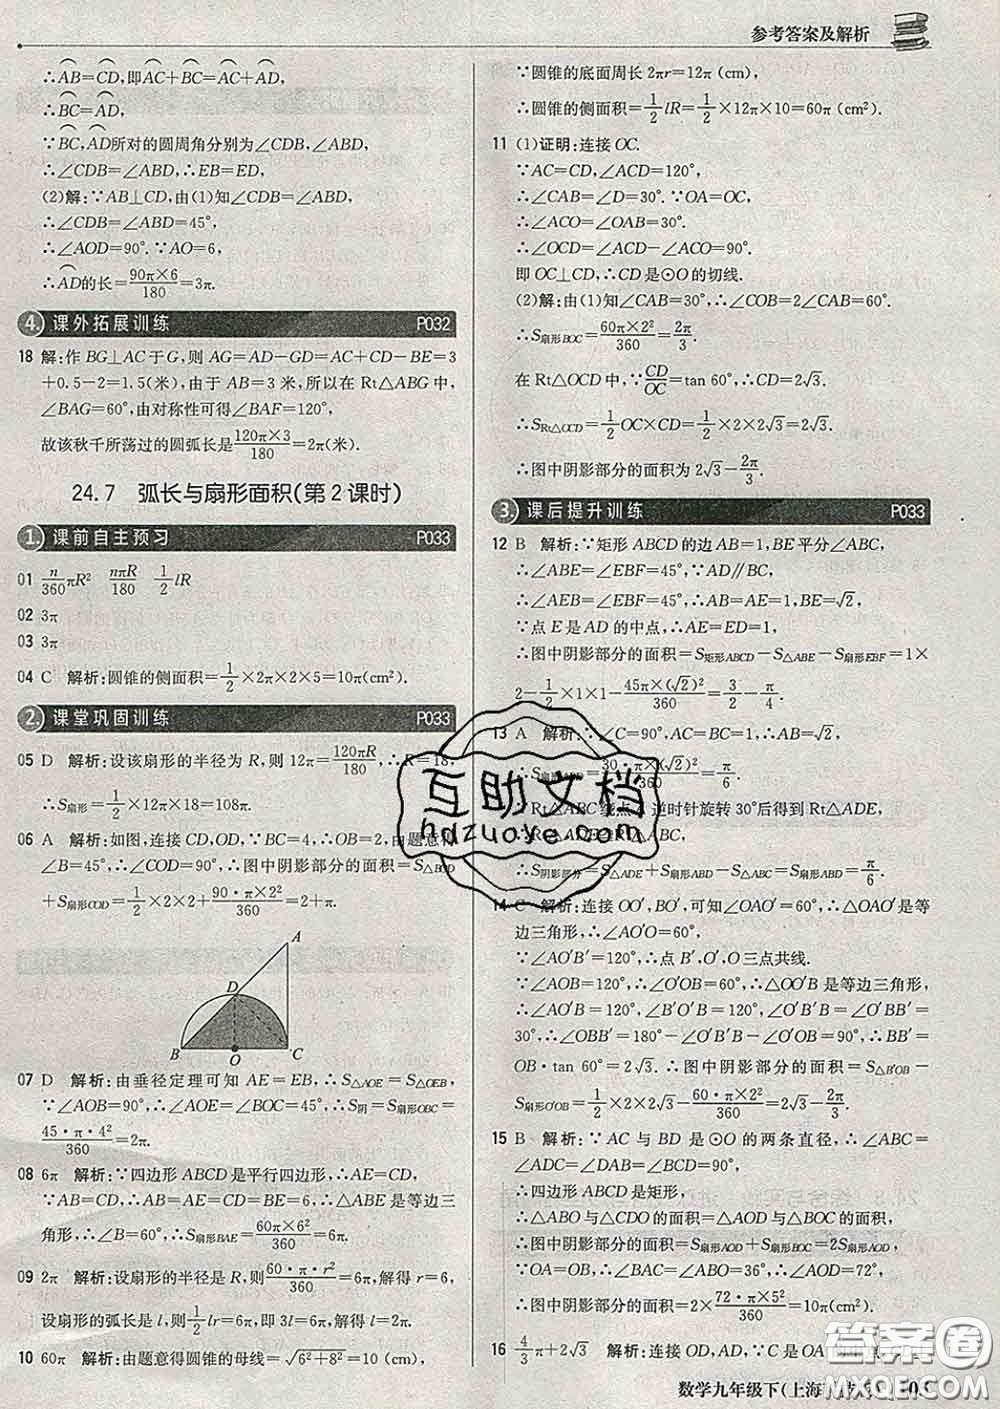 参考答案及解析
∴AB=CD,即AC+BC=AC+AD,
∴BC=AD.
∵BC,AD所对的圆周角分别为∠CDB,∠ABD,
∴∠CDB=∠ABD,∴EB=ED.
(2)解:∵AB⊥CD,由(1)知∠CDB=∠ABD,
∴∠CDB=∠ABD=45°,
∴∠AOD=90°.∵AO=6,
∴AD的长=90π×6/180=3π.
4. 课外拓展训练 P032
18 解:作BG⊥AC于G,则AG=AD-GD=AC+CD-BE=3
+0.5-2=1.5(米),由于AB=3米,所以在Rt△ABG中,
∠BAG=60°,由对称性可得∠BAF=120°,
故该秋千所荡过的圆弧长是120π×3/180=2π(米).
24.7 弧长与扇形面积(第2课时)
1. 课前自主预习 P033
01 n/360 πR² nπR/180 1/2 lR
02 3π
03 3π
04 C 解析:圆锥的侧面积=1/2×2π×2×5=10π(cm²).
2. 课堂巩固训练 P033
05 D 解析:设该扇形的半径为R,则12π=120πR/180,∴R=18,
∴S扇形=1/2×12π×18=108π.
06 A 解析:如图,连接CD,OD,∵BC=4,∴OB=2,由题意得
∠B=45°,∴∠COD=90°.∴图中阴影部分的面积=S△BOD
+S扇形COD=1/2×2×2+90·π×2²/360=2+π.
A
D
B O C
07 D 解析:由垂径定理可知AE=EB,∴S△AOE=S△OEB,
∵∠AOB=90°,∴∠AOE=∠BOC=45°,∴S阴=S扇形OBC=
45·π·4²/360=2π.
08 6π 解析:∵四边形ABCD是平行四边形,∴AE=CD,
∵AB=CD,∴AB=AE=CD=BE=6,∴△ABE是等边三
角形,∴∠B=60°,∴S扇形BAE=60π×6²/360=6π.
09 2π 解析:设扇形的半径是R,则60·π·r²/360=6π,解得r=6,
设扇形的弧长是l,则1/2 lr=6π,即3l=6π,解得l=2π.
10 60π 解析:由题意得圆锥的母线=√(6²+8²)=10(cm),
∵圆锥的底面周长2πr=12π(cm),
∴圆锥的侧面积=1/2 lR=1/2×12π×10=60π(cm²).
11 (1)证明:连接OC.
∵AC=CD,∠ACD=120°,
∴∠CAB=∠D=30°.∵OA=OC,
∴∠ACO=∠OAB=30°.
∴∠OCD=∠ACD-∠ACO=90°.
即OC⊥CD,∴CD是⊙O的切线.
(2)解:由(1)知∠CAB=30°,∴∠COB=2∠CAB=60°.
∴S扇形BOC=60π×2²/360=2π/3.
在Rt△OCD中,∵CD/OC=tan 60°,∴CD=2√3.
∴S Rt△OCD=1/2 OC×CD=1/2×2×2√3=2√3.
∴图中阴影部分的面积为2√3-2π/3.
3. 课后提升训练 P033
12 B 解析:∵矩形ABCD的边AB=1,BE平分∠ABC,
∴∠ABE=∠EBF=45°,∵AD∥BC,
∴∠AEB=∠EBF=45°,∴AB=AE=1,BE=√2,
∵点E是AD的中点,∴AE=ED=1,
∴图中阴影部分的面积=S矩形ABCD-S△ABE-S扇形EBF=1×
2-1/2×1×1-45π×(√2)²/360=3/2-π/4.
13 A 解析:∵∠C=90°,AC=BC=1,∴AB=√2,
∴S扇形ABD=30·π×(√2)²/360=π/6.
∵Rt△ABC绕点A逆时针旋转30°后得到Rt△ADE,
∴S阴影部分=S△ADE+S扇形ABD-S△ABC=S扇形ABD=π/6.
14 C 解析:连接OO′,BO′,可知∠OAO′=60°,∴△OAO′是等边
三角形,∴∠AO′O=60°.
∵∠AO′B′=120°,∴点B′,O′,O三点共线.
∵∠AOB=120°,∴∠O′OB=60°,∴△OO′B是等边三角形,
∴∠AO′B=120°,∠AO′B′=120°,∴∠O′B′B=∠O′BB′=
30°,∴∠OBB′=180°-∠O′B′B-∠O′OB=90°,∴BB′=
OB·tan 60°=2√3.∴图中阴影部分的面积=S△B′BO-
S扇形O′OB=1/2×2×2√3-60·π×2²/360=2√3-2π/3.
15 B 解析:∵AC与BD是⊙O的两条直径,∴∠ABC=
∠ADC=∠DAB=∠BCD=90°,
∴四边形ABCD是矩形,
∴△ABO与△CDO的面积=△AOD与△BOC的面积,
∴图中阴影部分的面积=S扇形AOD+S扇形BOC=2S扇形AOD,
∵OA=OB,∴∠BAC=∠ABO=36°,∴∠AOD=72°,
∴图中阴影部分的面积=2×72·π×5²/360=10π(cm²).
16 4/3 π+2√3 解析:连接OD,AD,∵C为OA的
互助文档
hdzuoye.com
答案圈
数学九年级下(上海